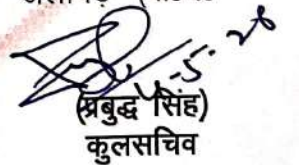 4-5-26
(प्रबुद्ध सिंह)
कुलसचिव